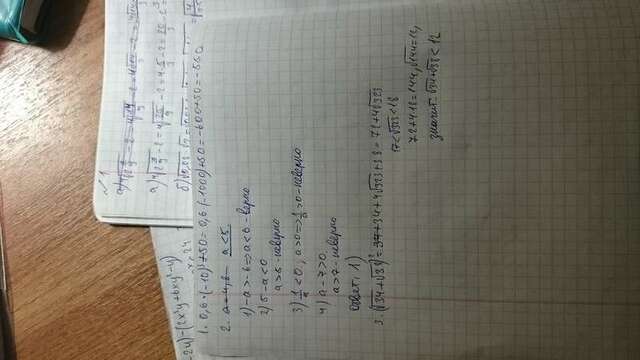 √1
а) 4√2 7/9 - 2 = 4√25/9 - 2 = 4·5/3 - 2 = 20/3 - 2
-2y)-(2x²y+6xy²-y)
1. 0,6·(-10)³+50=0,6·(-1000)+50=-600+50=-550
2. a=4,6 a<5.
1) -a>-6⇒a<6-верно
2) 5-a<0
a>5-неверно
3) 1/a<0, a>0⇒1/a>0-неверно
4) a-7>0
a>7-неверно
Ответ: 1)
3. (√34+√38)²=37+34+4√323+38=72+4√323
17<√323<18
72+4·18=144, √144=12,
значит √34+√38<12